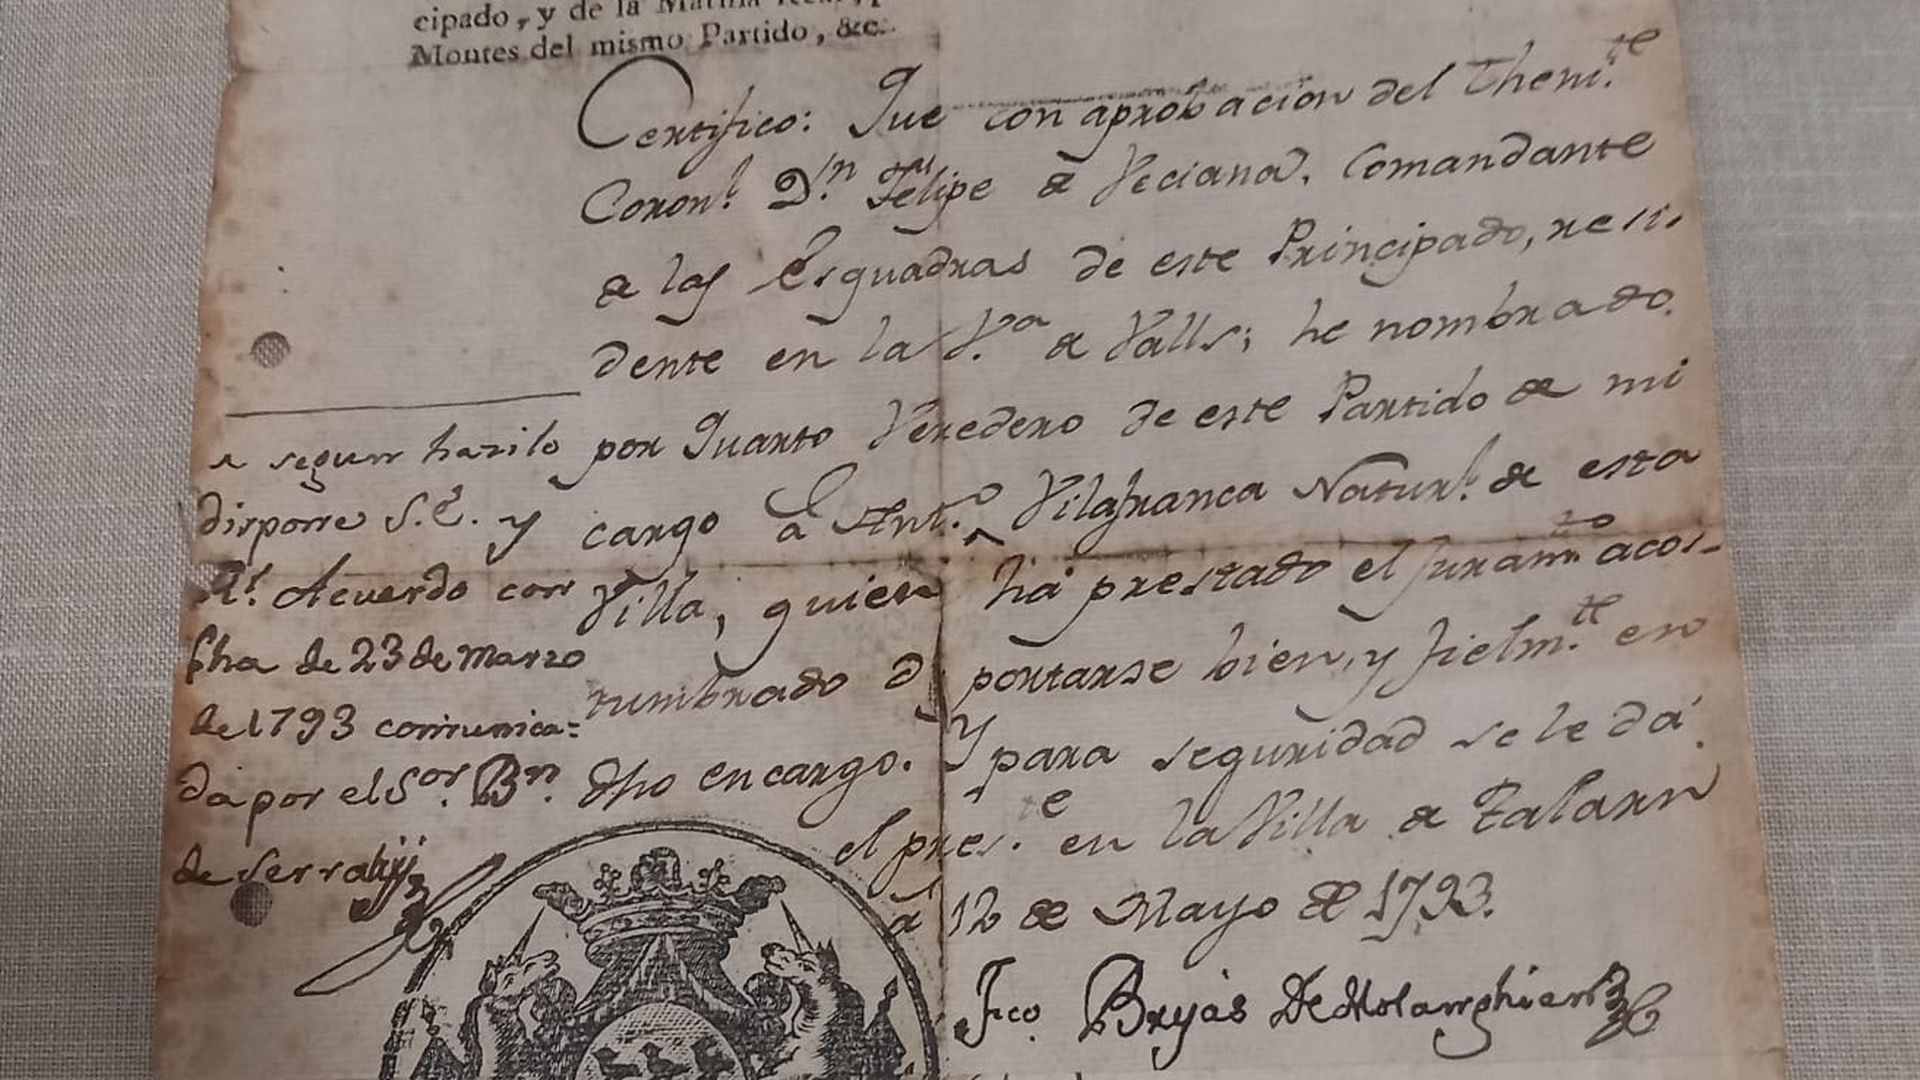 cipado, y de la Marina Real,
Montes del mismo Partido, &c.
Certifico: Que con aprobacion del Theni.te
Coron.l D.n Felipe de Veciana, Comandante
de las Esquadras de este Principado, resi.
dente en la V.a de Valls; he nombrado
por Quarto Veredero de este Partido de mi
y cargo à Ant.o Vilafranca Natur.l de esta
Villa, quien há prestado el Juram.to acos-
tumbrado d portarse bien, y fielm.te en
dho encargo. Y para seguridad se le dá
el pres.te en la Villa de Talarn
à 12 de Mayo de 1793.
Fco. Bryàs De Molanghien
segun hazilo
dispone S.E.
R.l Acuerdo con
fha de 23 de Marzo
de 1793 comunica=
da por el S.or B.n
de Serrahij